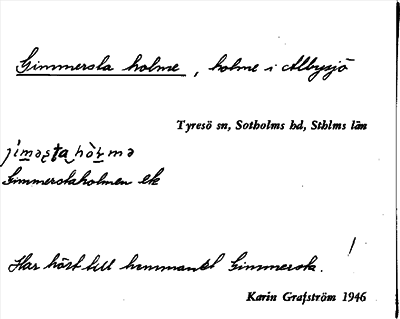 Gimmersta holme, holme i Albysjö
Tyresö sn, Sotholms hd, Sthlms län
Gimmerstaholmen ek
Har hört till hemmanet Gimmersta.
Karin Grafström 1946